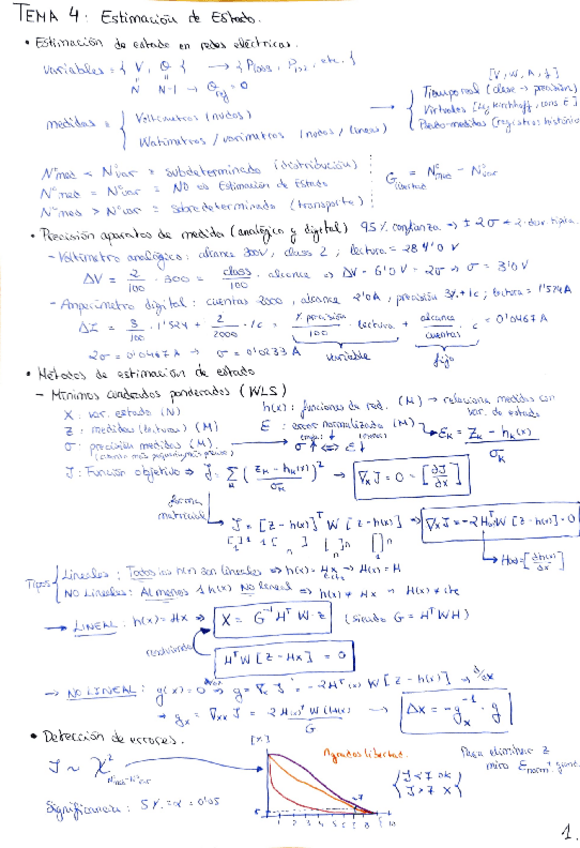 TEMA 4: Estimación de Estado.
• Estimación de estado en redes eléctricas.
variables = { V, θ } → { Ploss, Pij, etc. }
N N-1 → θref = 0
medidas = { Voltímetros (nodos)
Watímetros / varímetros (nodos / líneas)
[V, W, A, f]
Tiempo real (clase → precisión)
Virtudes [Ley Kirchhoff, cons E]
Pseudo-medidas (registros histórico
Nº med < Nº var = subdeterminado (distribución)
Nº med = Nº var = NO es Estimación de Estado
Nº med > Nº var = sobredeterminado (transporte)
G libertad = Nº med - Nº var
• Precisión aparatos de medida (analógico y digital) 95% confianza → ± 2σ → 2 · desv. típica.
- Voltímetro analógico: alcance 300V, class 2; lectura = 284'0 V
ΔV = 2/100 · 300 = class/100 · alcance → ΔV = 6'0V = 2σ → σ = 3'0V
- Amperímetro digital: cuentas 2000, alcance 2'0A, precisión 3%+1c; lectura = 1'524A
ΔI = 3/100 · 1'524 + 2/2000 · 1c = % precisión/100 · lectura + alcance/cuentas · c = 0'0467 A
variable fijo
2σ = 0'0467 A → σ = 0'0233 A
• Métodos de estimación de estado
- Mínimos cuadrados ponderados (WLS)
X: var. estado (N) h(x): funciones de red. (M) → relaciona medidas con var. de estado
z: medidas (lecturas) (M) E: error normalizado (M) → Ek = (zk - hk(x))/σk
σ: precisión medidas (M). → σ↑ ⇔ E↓
J: Función objetivo ⇒ J = Σk ((zk - hk(x))/σk)² → ∇x J = 0 = [∂J/∂x]
forma matricial → J = [z - h(x)]ᵀ W [z - h(x)] → ∇x J = -2Hᵀ(x) W [z - h(x)] = 0
[ ] 1 [ ] n [ ] n n [] n 1
↳ H(x) = [∂h(x)/∂x]
Tipos { Lineales: Todas las h(x) son lineales ⇒ h(x) = Hx → H(x) = H
NO Lineales: Al menos 1 h(x) NO lineal ⇒ h(x) ≠ Hx → H(x) ≠ cte
→ LINEAL: h(x) = Hx ⇒ X = G⁻¹ Hᵀ W · z (siendo G = HᵀWH)
resolviendo
HᵀW [z - Hx] = 0
→ NO LINEAL: g(x) = 0 ⇒ g = ∇x J = -2Hᵀ(x) W [z - h(x)] → ∂/∂x
→ gx = ∇xx J = 2H(x)ᵀ W (H(x)) → Δx = -gx⁻¹ · g
G
• Detección de errores.
[%]
J ~ χ² Nº med - Nº var
Significancia: 5% = α = 0'05
n grados libertad.
1 2 3 4 5 6 7 8 9 10
{ J < 7 ok
J > 7 X }
Para eliminar z
miro E norm.
1.